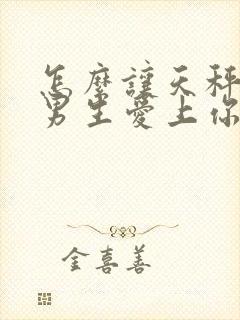 怎麼讓天秤
男生愛上你
金喜善